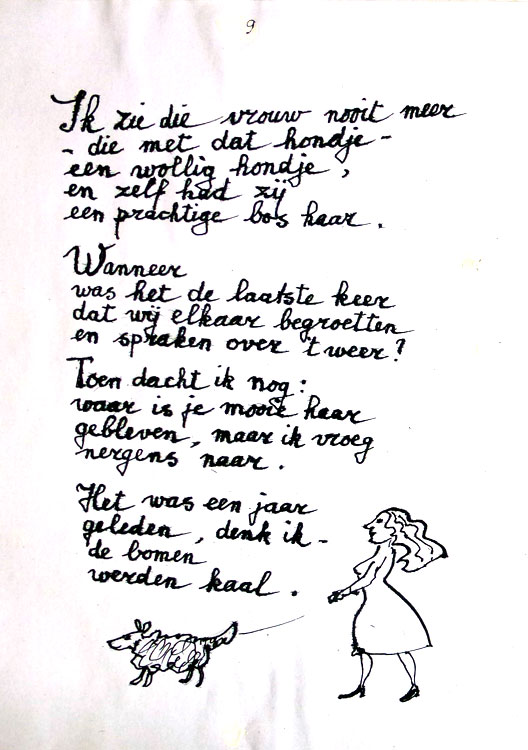 9
Ik zie die vrouw nooit meer
- die met dat hondje -
een wollig hondje,
en zelf had zij
een prachtige bos haar.
Wanneer
was het de laatste keer
dat wij elkaar begroetten
en spraken over 't weer?
Toen dacht ik nog:
waar is je mooie haar
gebleven, maar ik vroeg
nergens naar.
Het was een jaar
geleden, denk ik -
de bomen
werden kaal.